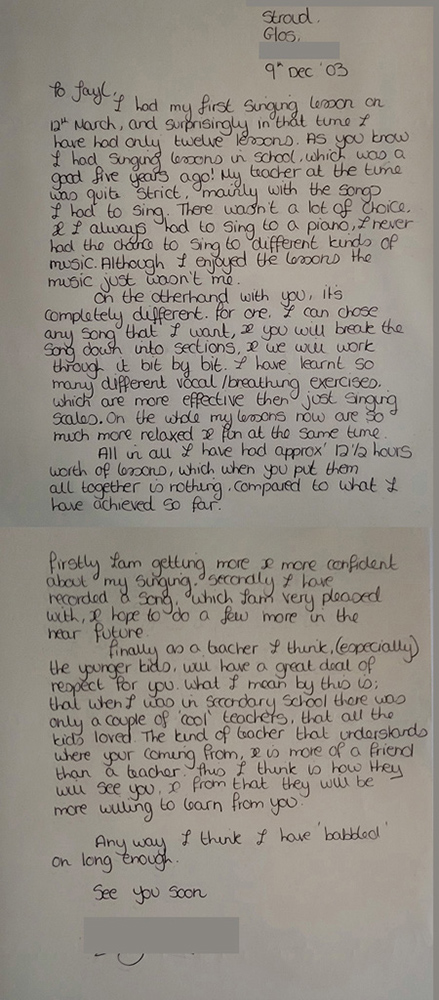 Stroud.
Glos,
9th Dec '03
To Jayl,
I had my first singing lesson on
12th March, and surprisingly in that time I
have had only twelve lessons. As you know
I had singing lessons in school, which was a
good five years ago! My teacher at the time
was quite strict, mainly with the songs
I had to sing. There wasn't a lot of choice.
& I always had to sing to a piano, I never
had the chance to sing to different kinds of
music. Although I enjoyed the lessons the
music just wasn't me.
On the otherhand with you, it's
completely different. For one, I can chose
any song that I want, & you will break the
song down into sections, & we will work
through it bit by bit. I have learnt so
many different vocal/breathing exercises.
which are more effective then just singing
scales. On the whole my lessons now are so
much more relaxed & fun at the same time.
All in all I have had approx' 12½ hours
worth of lessons, which when you put them
all together is nothing. compared to what I
have achieved so far.
Firstly I am getting more & more confident
about my singing. Secondly I have
recorded a song, which I am very pleased
with, & hope to do a few more in the
near future.
Finally as a teacher I think, (especially)
the younger kids, will have a great deal of
respect for you. What I mean by this is;
that when I was in secondary school there was
only a couple of 'cool' teachers, that all the
kids loved. The kind of teacher that understands
where your coming from, & is more of a friend
than a teacher. This I think is how they
will see you, & from that they will be
more willing to learn from you.
Any way I think I have 'babbled'
on long enough.
See you soon